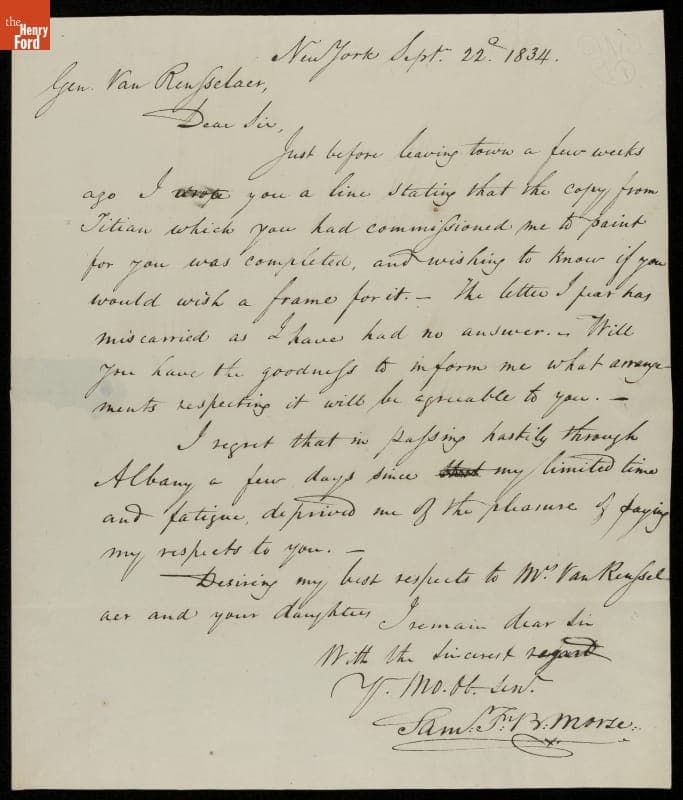 the
Henry
Ford
New York Sept. 22d. 1834.
Gen. Van Rensselaer,
Dear Sir,
Just before leaving town a few weeks
ago I wrote you a line stating that the copy from
Titian which you had commissioned me to paint
for you was completed, and wishing to know if you
would wish a frame for it. — The letter I fear has
miscarried as I have had no answer. — Will
you have the goodness to inform me what arrange-
ments respecting it will be agreeable to you. —
I regret that in passing hastily through
Albany a few days since that my limited time
and fatigue, deprived me of the pleasure of paying
my respects to you. —
Desiring my best respects to Mrs. Van Renssel-
aer and your daughters
I remain dear Sir
With the sincerest regard
Yr. Mo. Ob. Sert.
Saml. F. B. Morse.